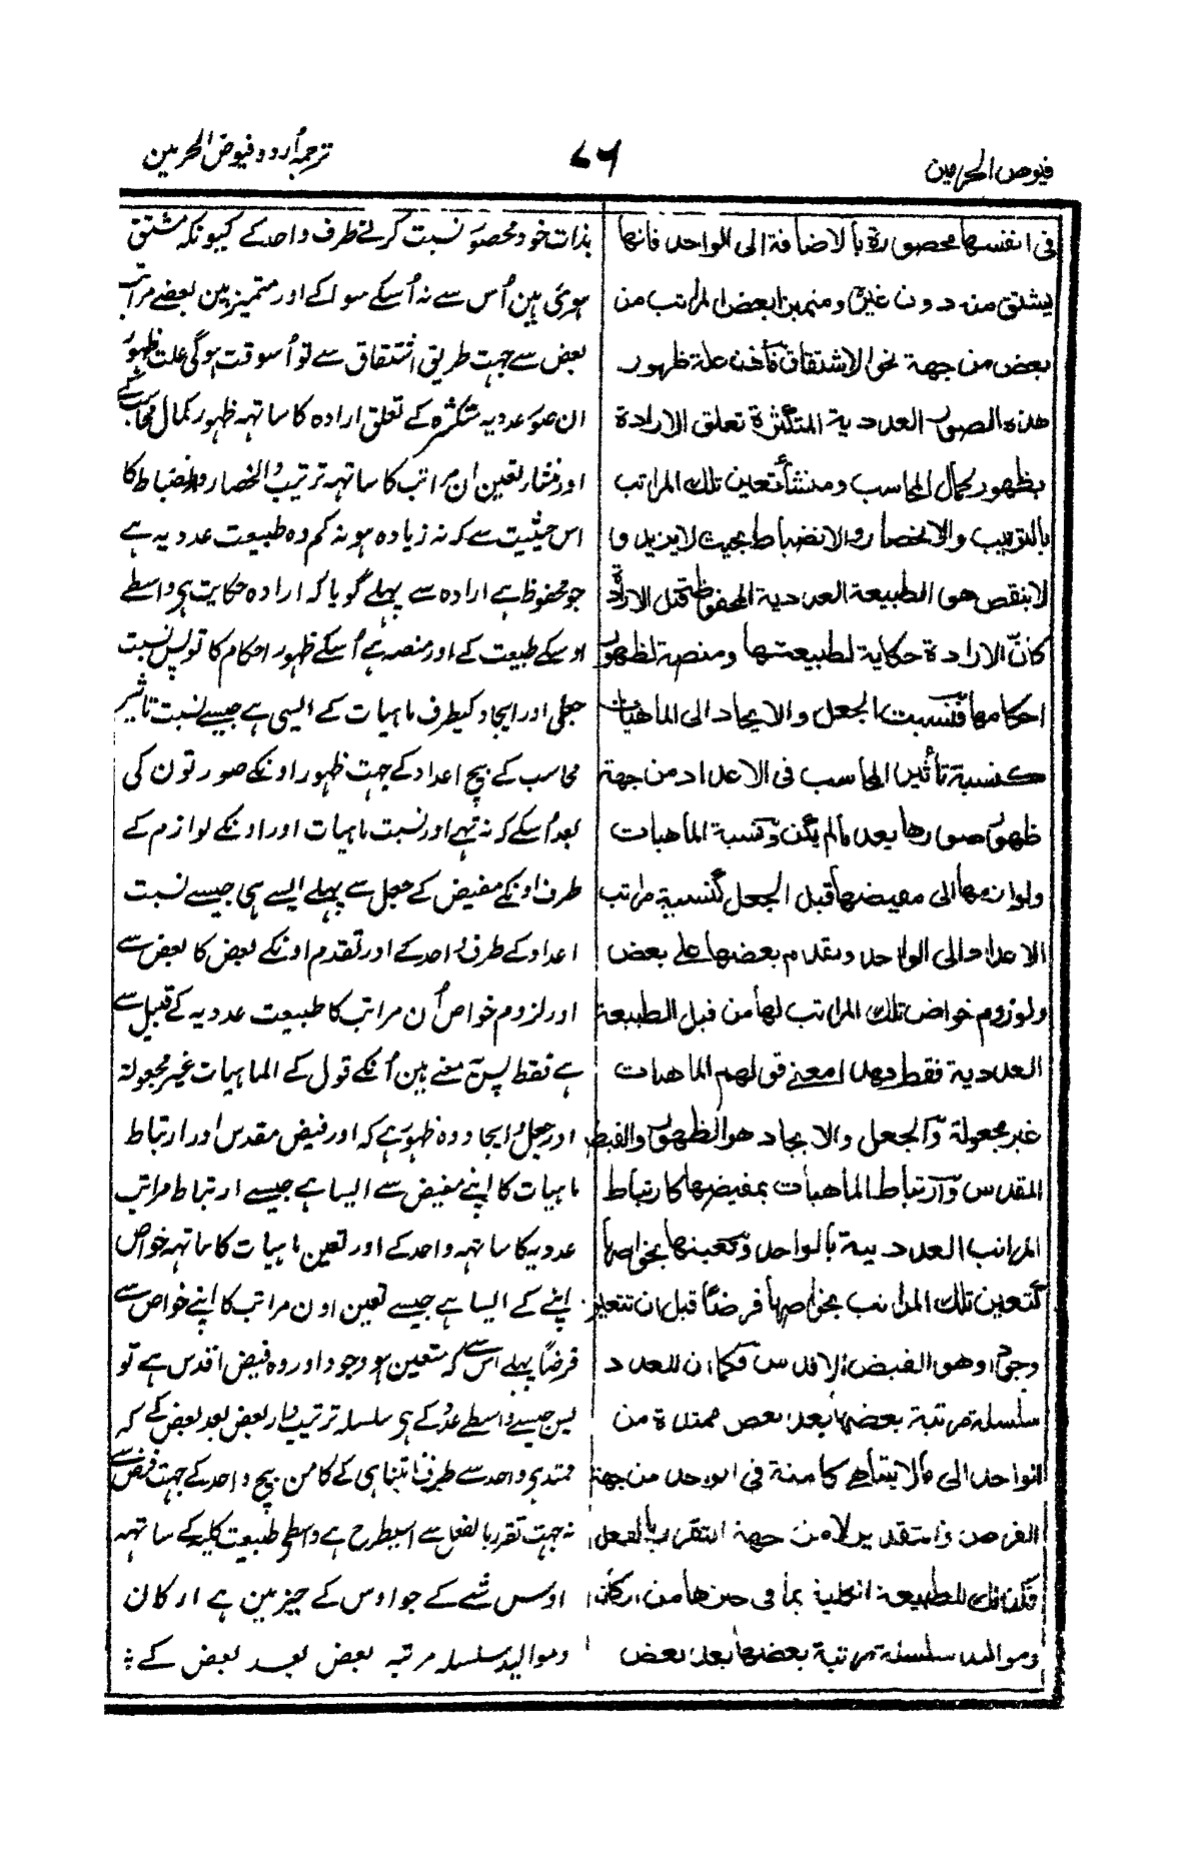 فیوض الحرمین
۷۶
ترجمہ اُردو فیوض الحرمین
فی انفسها محصورة بالاضافة الی الواحد فانها
یشتق منه دون غیره ومتمیز بعض المراتب من
بعض من جهة نحو الاشتقاق فاذن علة ظهور
هذه الصور العددية المتكثرة تعلق الارادة
بظهور كمال المحاسب ومنشأ تعين تلك المراتب
بالترتيب والانحصار والانضباط بحيث لا يزيد و
لا ينقص هی الطبيعة العددية المحفوظة قبل الارادة
كانّ الارادة حكاية لطبيعتها ومنصة لظهور
احكامها فنسبة الجعل والايجاد الى الماهيات
كنسبة تأثير المحاسب فى الاعداد من جهة
ظهور صورها بعد مالم يكن ونسبة الماهيات
ولوازمها الى مفيضها قبل الجعل كنسبة مراتب
الاعداد الى الواحد وتقدم بعضها على بعض
ولزوم خواص تلك المراتب لها من قبل الطبيعة
العددية فقط وهذا معنے قولهم الماهيات
غير مجعولة وآلجعل والايجاد هو الظهور والفيض
المقدس وآرتباط الماهيات بمفيضها كارتباط
المراتب العددية بالواحد وتعينها بخواصها
كتعين تلك المراتب بخواصها فرضًا قبل ان تتعين
وجودا وهو الفيض الاقدس فكما ان للعدد
سلسلة مرتبة بعضها بعد بعض ممتدة من
الواحد الى مالا يتناهى كامنة فى الواحد من جهة
الفرض والتقدير لا من جهة التقرر بالفعل
فكذلك للطبيعة الكلية بما فى حيزها من اركان
ومواليد سلسلة مرتبة بعضها بعد بعض
بذات خود محصور نسبت کرنے طرف واحد کے کیونکہ مشتق
ہوئی ہین اُس سے نہ اُسکے سوا کے اور متمیز ہین بعضے مراتب
بعض سے جہت طریق اشتقاق سے تو اُسوقت ہوگی علت ظہور
ان صور عددیہ متکثرہ کے تعلق ارادہ کا ساتھہ ظہور کمال محاسب کے
اور منشار تعین ان مراتب کا ساتھہ ترتیب و انحصار و انضباط کا
اس حیثیت سے کہ نہ زیادہ ہو نہ کم وہ طبیعت عددیہ ہے
جو محفوظ ہے ارادہ سے پہلے گویا کہ ارادہ حکایت ہی واسطے
اوسکے طبیعت کے اور منصہ ہے اُسکے ظہور احکام کا تو پس نسبت
جعلی اور ایجاد کیطرف ماہیات کے ایسی ہے جیسے نسبت تاثیر
محاسب کے بیچ اعداد کے جہت ظہور اونکے صورتون کی
بعد اُسکے کہ نہ تہے اور نسبت ماہیات اور اونکے لوازم کے
طرف اونکے مفیض کے جعل سے پہلے ایسے ہی جیسے نسبت
اعداد کے طرف واحد کے اور تقدم اونکے بعض کا بعض سے
اور لزوم خواص اُن مراتب کا طبیعت عددیہ کے قبیل سے
ہے فقط پس یہ معنے ہین اُنکے قول کے الماہیات غیر مجعولة
اور جعل و ایجاد وہ ظہور ہے کہ اور فیض مقدس اور ارتباط
ماہیات کا اپنے مفیض سے ایسا ہے جیسے ارتباط مراتب
عددیہ کا ساتھہ واحد کے اور تعین ماہیات کا ساتھہ خواص
اپنے کے ایسا ہے جیسے تعین اون مراتب کا اپنے خواص سے
فرضًا پہلے اس سے کہ متعین ہو وجود اور وہ فیض اقدس ہے تو
پس جیسے واسطے عدد کے ہی سلسلہ ترتیب وار بعض بعد بعض کے کہ
ممتد ہی واحد سے طرف لا تناہی کے کامن بیچ واحد کے جہت فرض سے
نہ جہت تقرر بالفعل سے اسیطرح ہے واسطے طبیعت کلیہ کے ساتھہ
اوس شے کے جو اوس کے حیز مین ہے ارکان
وموالید سلسلہ مرتبہ بعض بعد بعض کے ؛